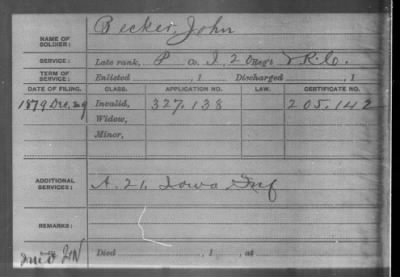 Becker, John
NAME OF SOLDIER:
SERVICE: Late rank, P Co. I, 20 Reg't V.R.C.
TERM OF SERVICE: Enlisted , 1 Discharged , 1
DATE OF FILING. CLASS. APPLICATION NO. LAW. CERTIFICATE NO.
1879 Dec. 29 Invalid, 327.138 205.142
Widow,
Minor,
ADDITIONAL SERVICES: A. 21, Iowa Inf
REMARKS:
Died , 1 , at